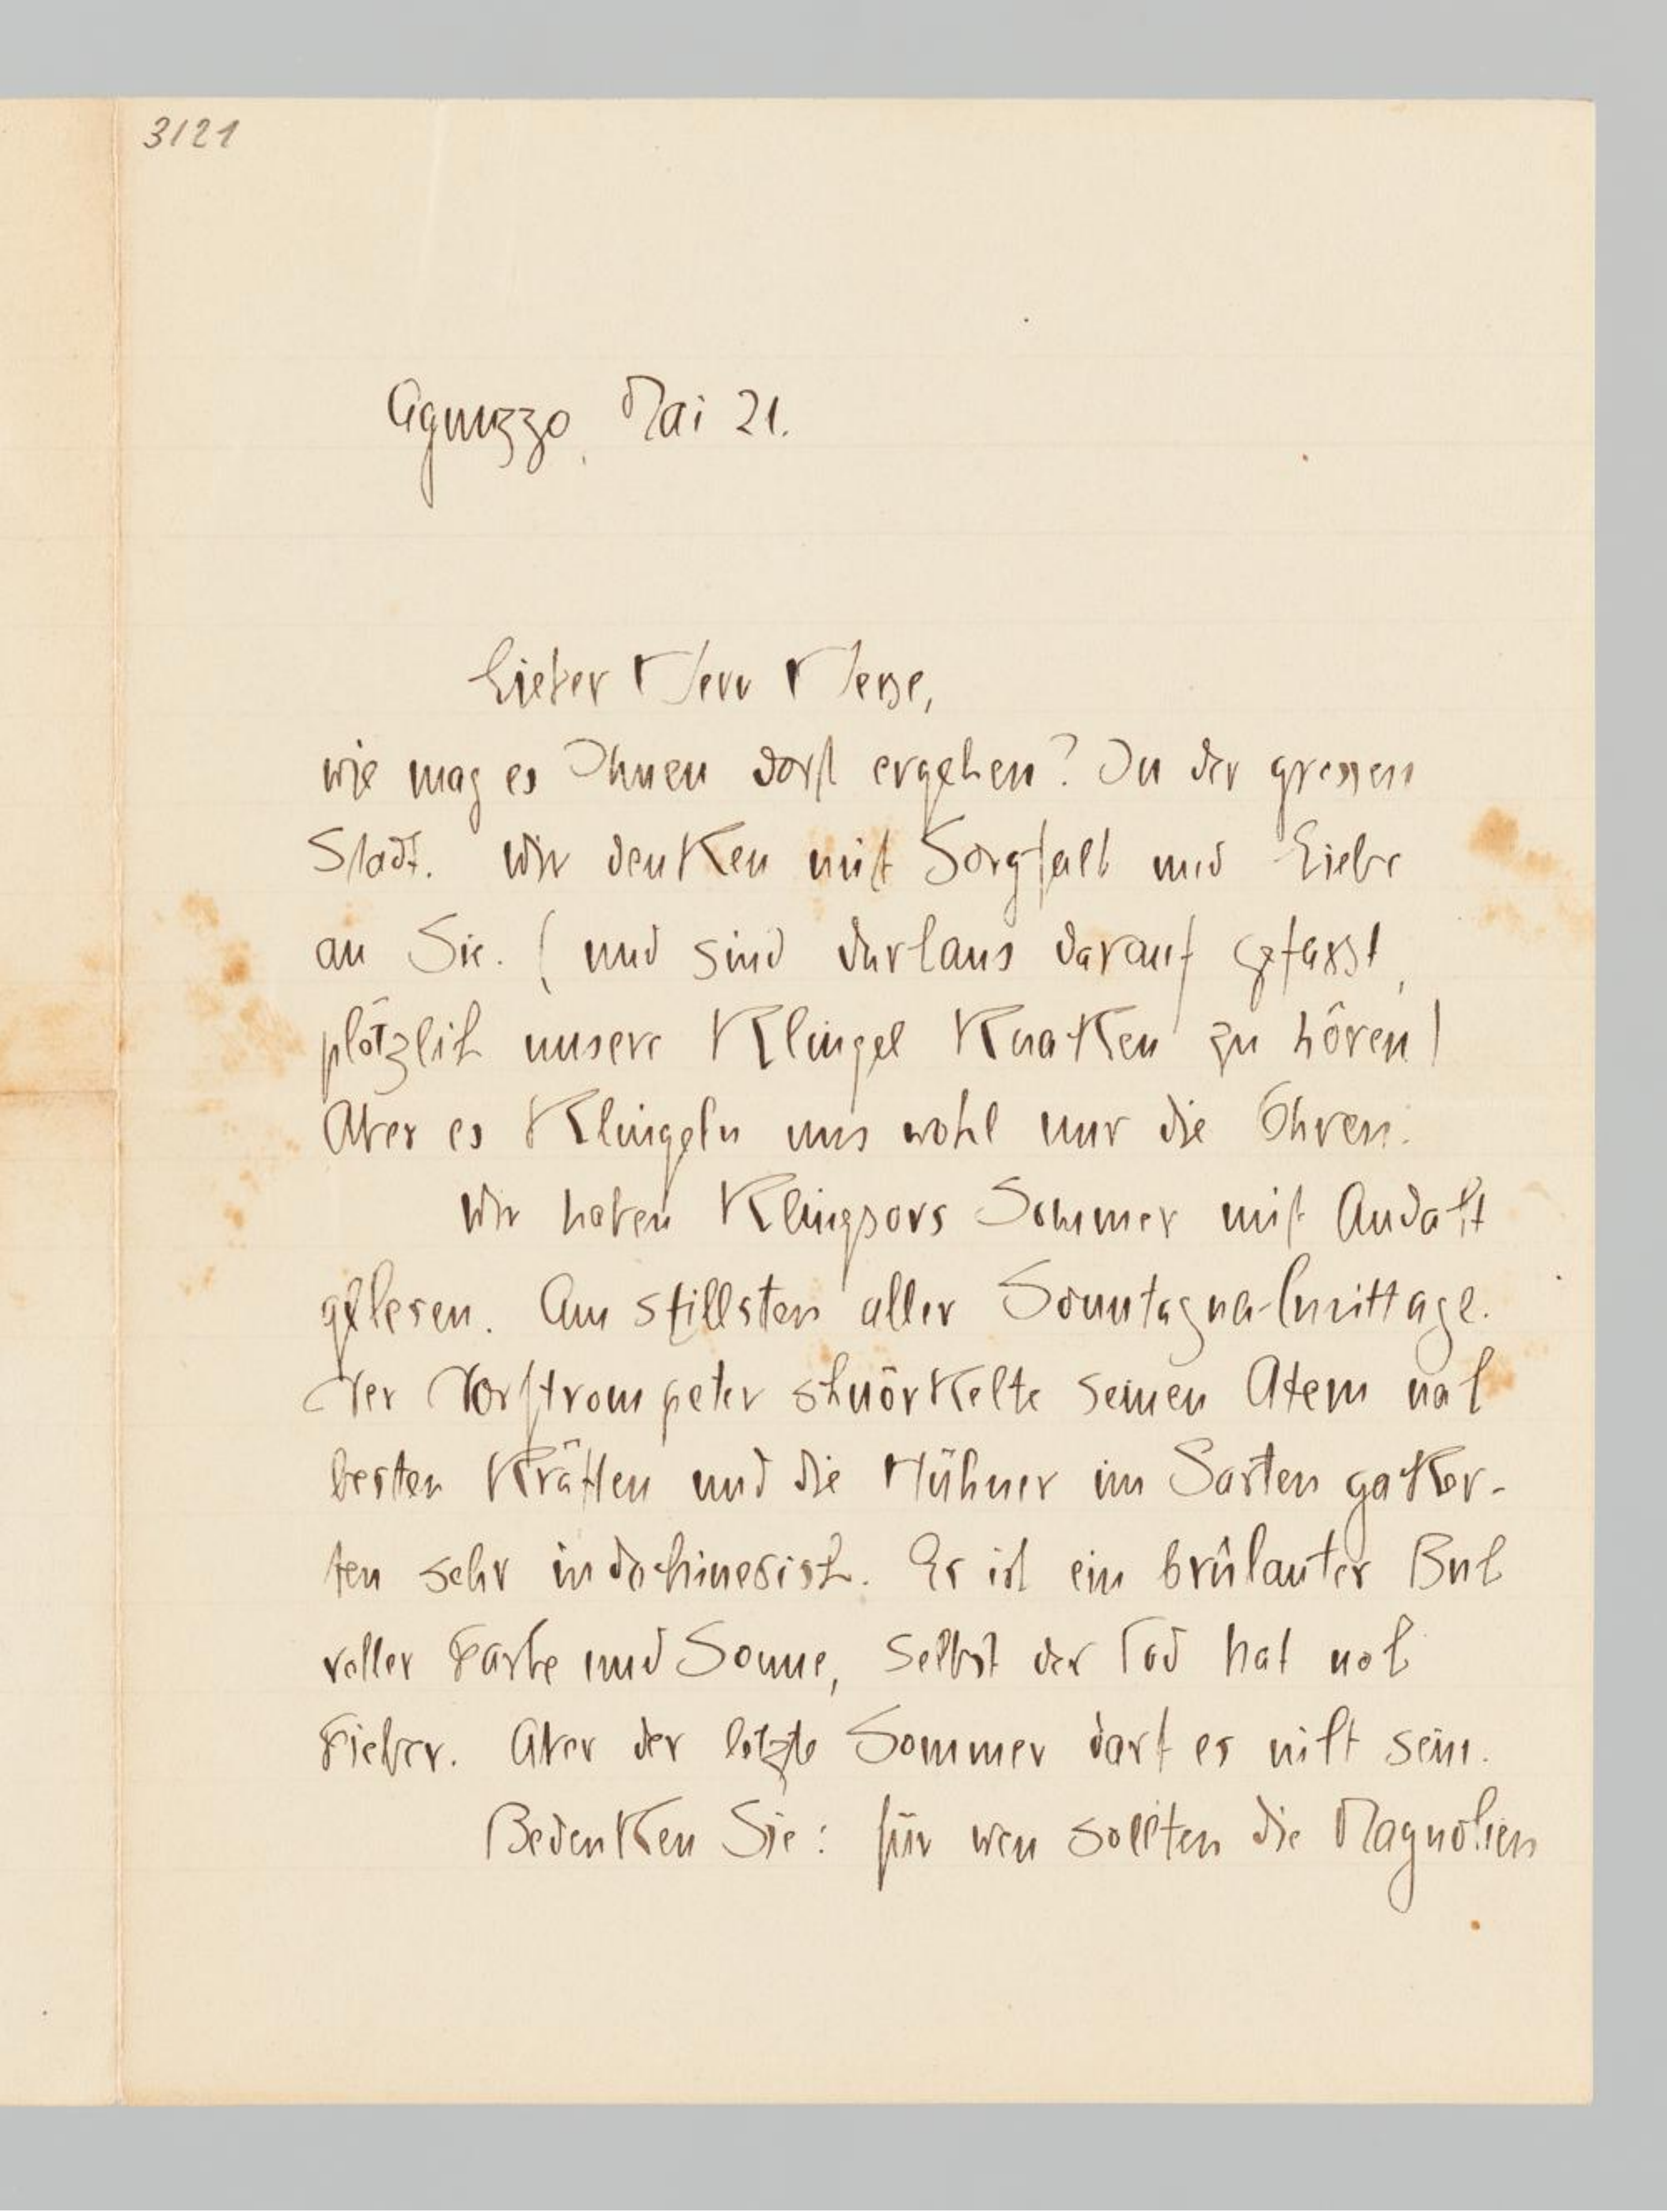 3121
Agnuzzo, Mai 21.
Lieber Herr Hesse,
wie mag es Ihnen dort ergehen? In der grossen
Stadt. Wir denken mit Sorgfalt und Liebe
an Sie. (und sind durchaus darauf gefasst,
plötzlich unsere Klingel knacken zu hören)
Aber es klingeln uns wohl nur die Ohren.
Wir haben Klingsors Sommer mit Andacht
gelesen. Am stillsten aller Sonntagnachmittage.
Der Dorftrompeter schnörkelte seinen Atem nach
besten Kräften und die Hühner im Garten gacker-
ten sehr indochinesisch. Es ist ein brülauter Buch
voller Farbe und Sonne, selbst der Tod hat noch
Fieber. Aber der letzte Sommer darf es nicht sein.
Bedenken Sie: für wen sollten die Magnolien